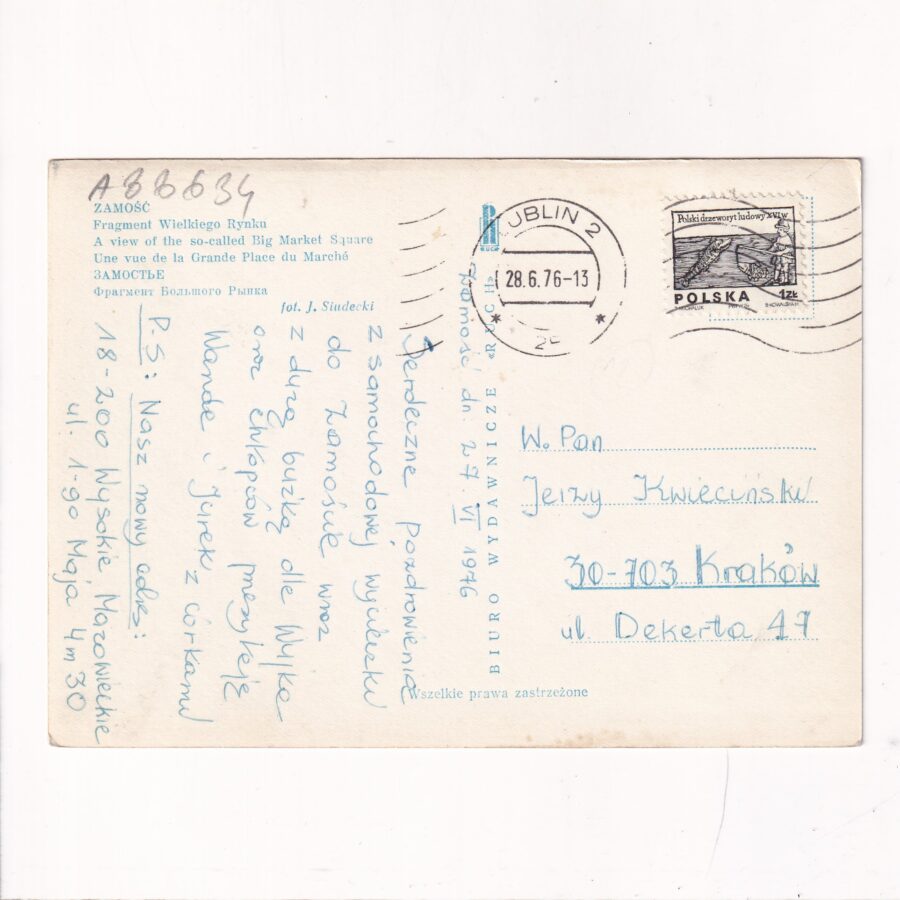 A88634
ZAMOŚĆ
Fragment Wielkiego Rynku
A view of the so-called Big Market Square
Une vue de la Grande Place du Marché
ЗАМОСТЬЕ
Фрагмент Большого Рынка
fot. J. Siudecki
Zamość dn. 27.VI 1976
Serdeczne pozdrowienia
z samochodowej wycieczki
do Zamościa wraz
z dużą buźką dla Wujka
oraz chłopców przesyłają
Wanda i Jurek z córkami
P.S: Nasz nowy adres:
18-200 Wysokie Mazowieckie
ul. 1-go Maja 4 m 30
RUCH
BIURO WYDAWNICZE «RUCH»
Wszelkie prawa zastrzeżone
UBLIN 2
28.6.76-13
Polski drzeworyt ludowy XVI w
POLSKA 1ZŁ
W. Pan
Jerzy Kwieciński
30-703 Kraków
ul. Dekerta 17